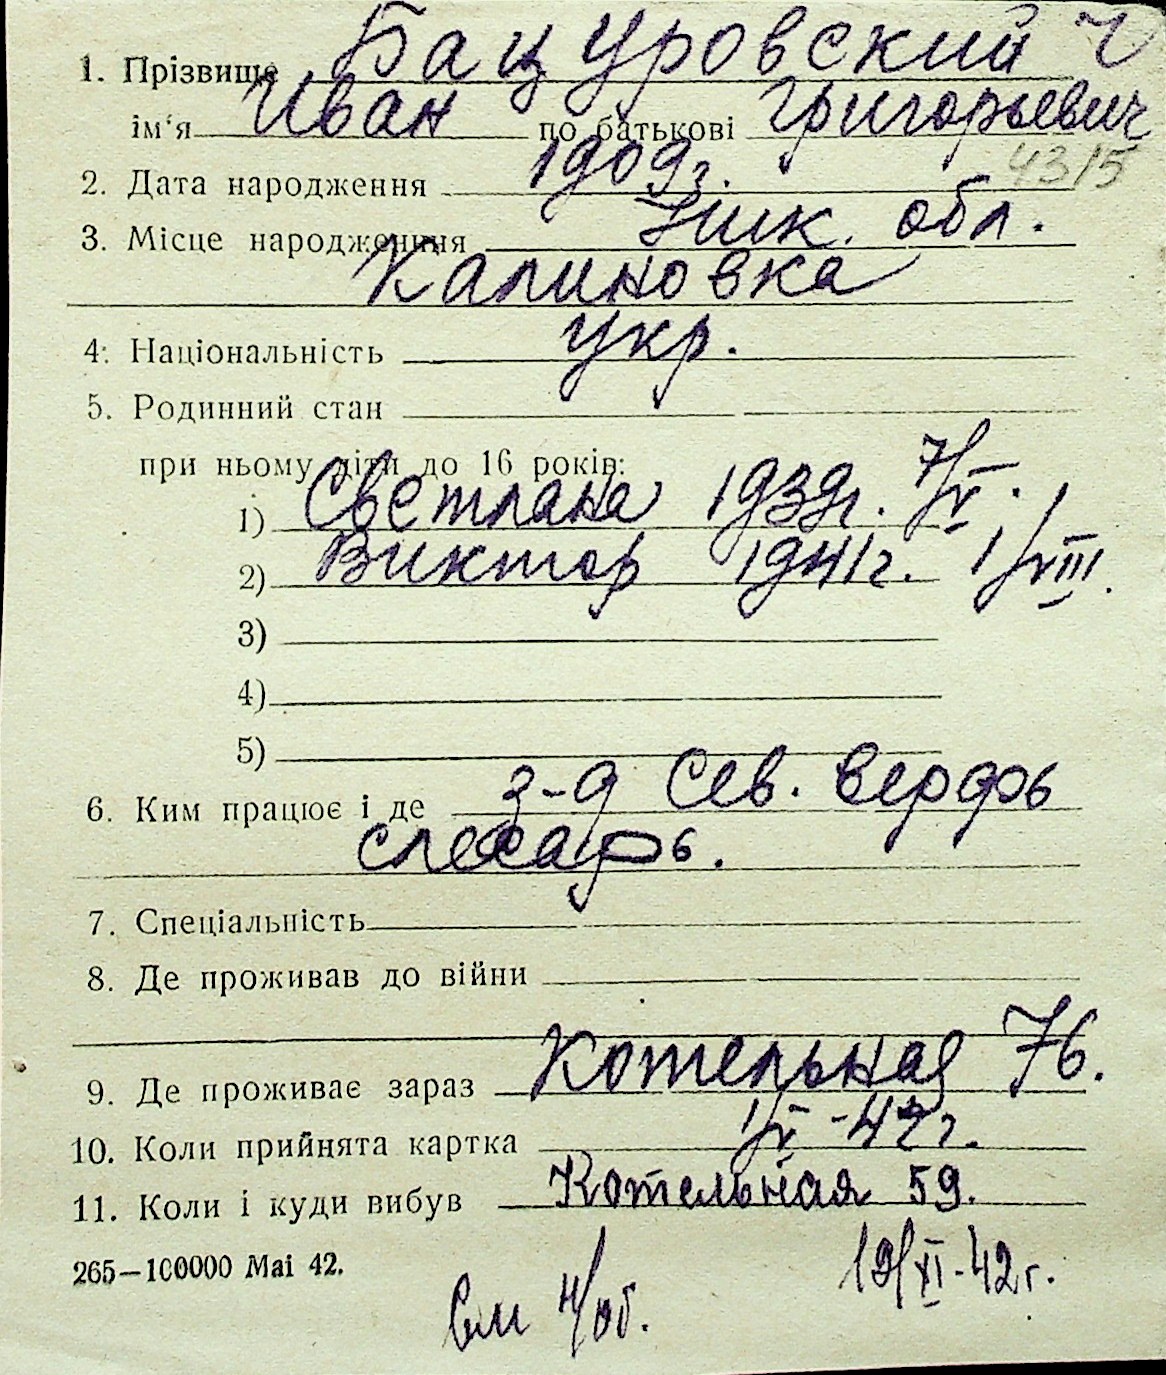 1. Прізвище Бацуровский
ім'я Иван по батькові Григорьевич
4315
2. Дата народження 1909г.
3. Місце народження Ник. обл.
Калиновка
4. Національність укр.
5. Родинний стан
при ньому діти до 16 років:
1) Светлана 1939г. 7/V.
2) Виктор 1941г. 1/VIII.
3)
4)
5)
6. Ким працює і де з-д Сев. верфь
слесарь.
7. Спеціальність
8. Де проживав до війни
9. Де проживає зараз Котельная 76.
10. Коли прийнята картка 1/V-42г.
11. Коли і куди вибув Котельная 59.
265—100000 Mai 42.
19/XI-42г.
см н/об.